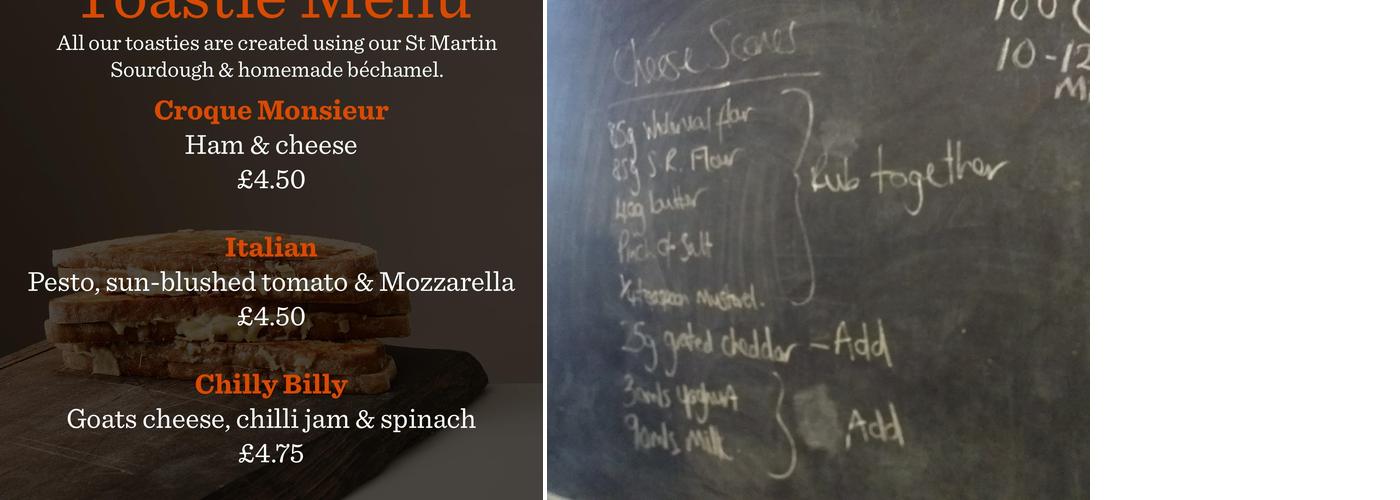 Toastie Menu
All our toasties are created using our St Martin
Sourdough & homemade béchamel.
Croque Monsieur
Ham & cheese
£4.50
Italian
Pesto, sun-blushed tomato & Mozzarella
£4.50
Chilly Billy
Goats cheese, chilli jam & spinach
£4.75
Cheese Scones
85g wholemeal flour
85g S.R. Flour
40g butter
Pinch of Salt
1/4 teaspoon mustard.
Rub together
25g grated cheddar - Add
30mls yoghurt
90mls Milk.
Add
10-12